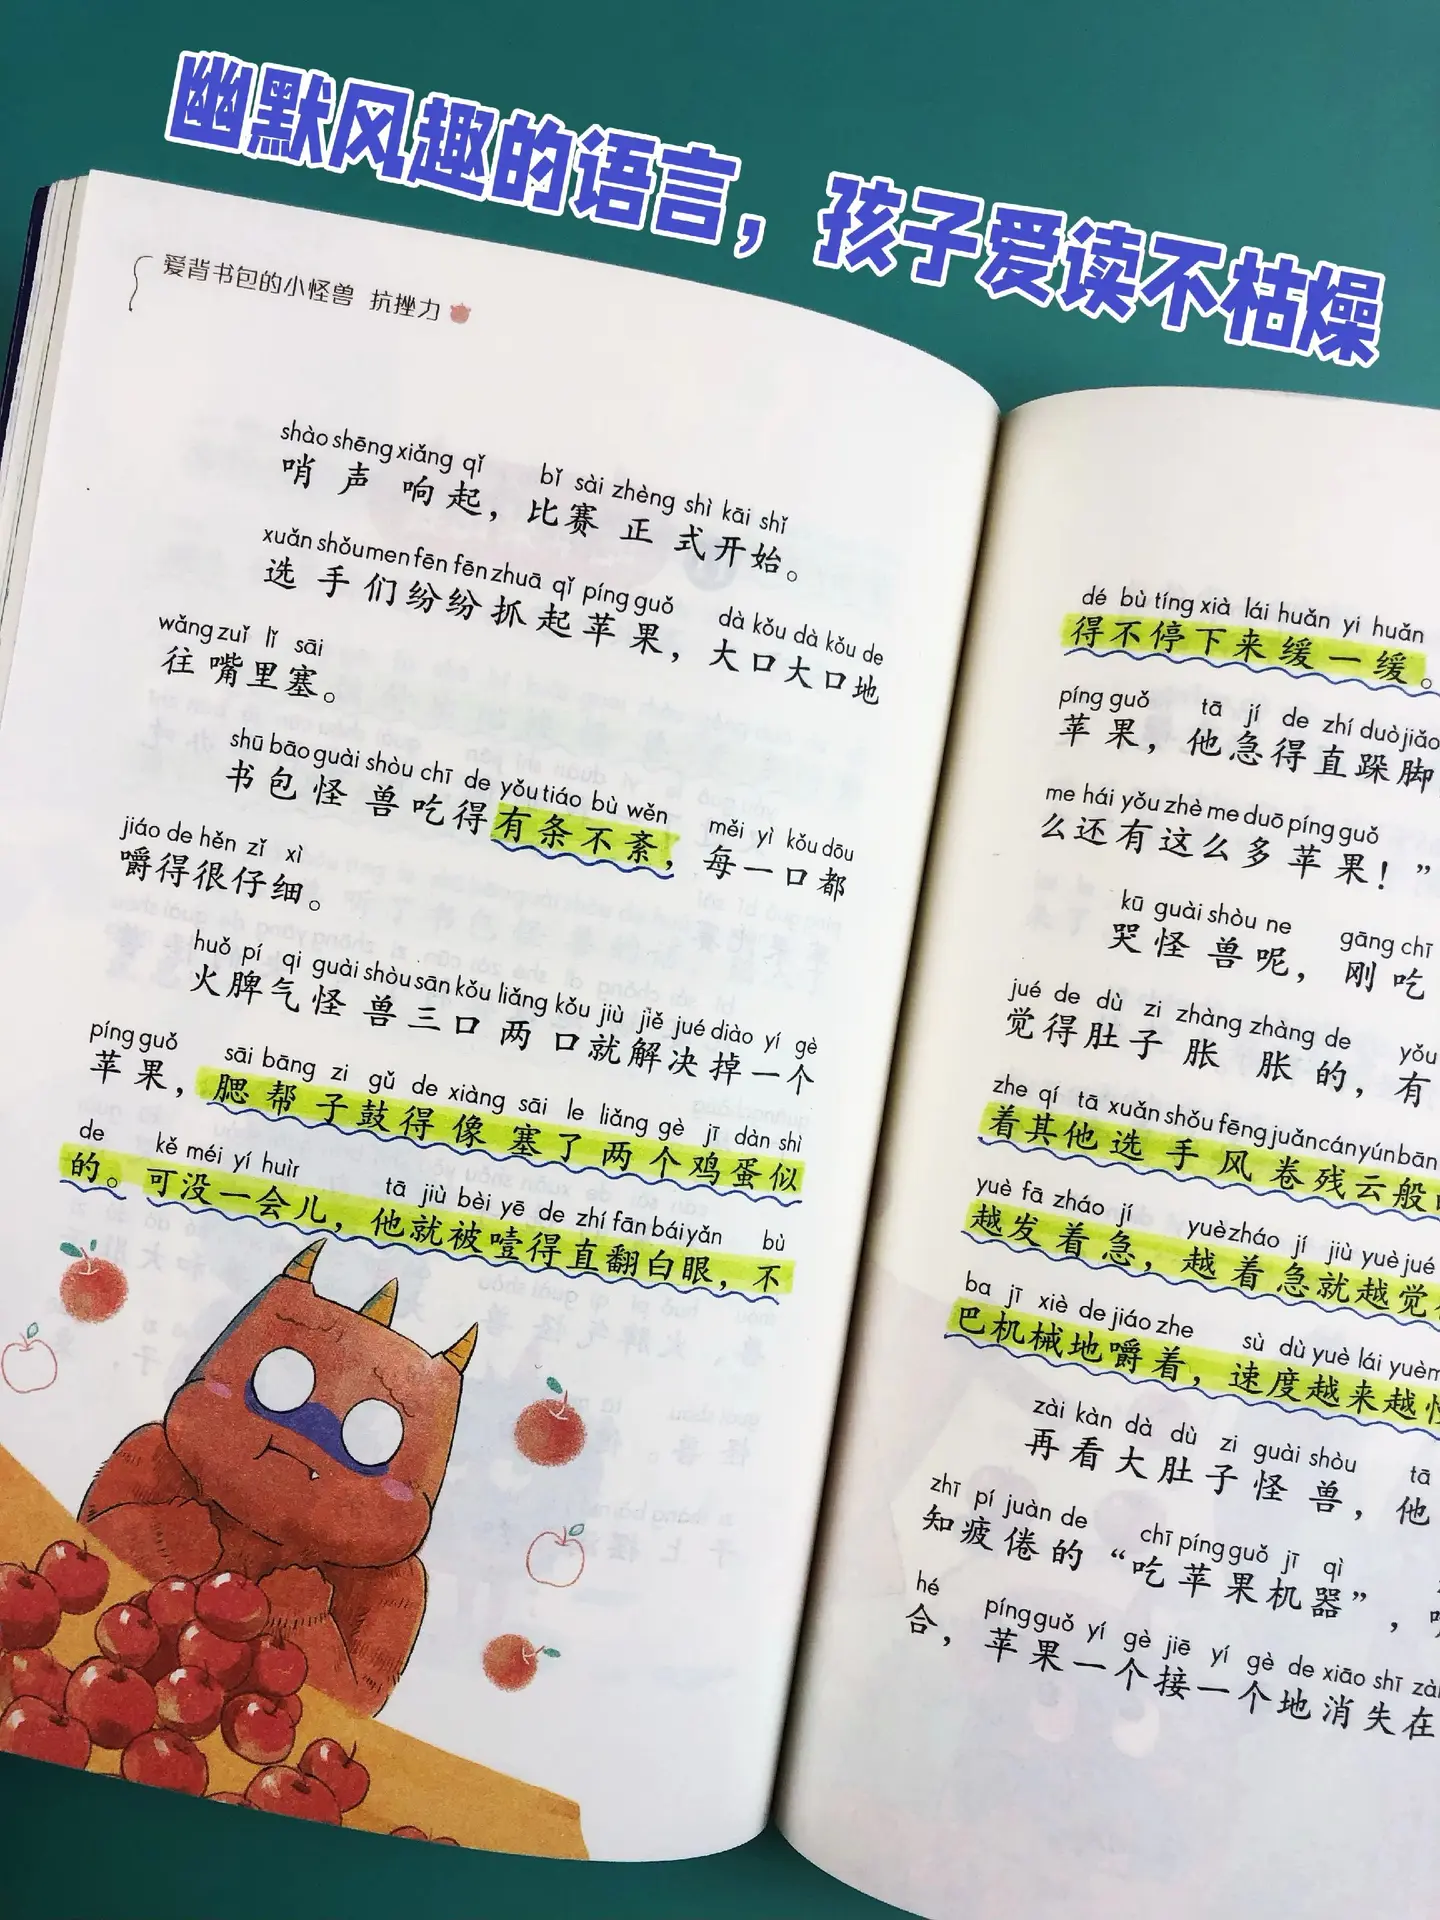 幽默风趣的语言，孩子爱读不枯燥
爱背书包的小怪兽 抗挫力
shào shēng xiǎng qǐ bǐ sài zhèng shì kāi shǐ
哨声响起，比赛正式开始。
xuǎn shǒu men fēn fēn zhuā qǐ píng guǒ dà kǒu dà kǒu de
选手们纷纷抓起苹果，大口大口地
wǎng zuǐ lǐ sāi
往嘴里塞。
shū bāo guài shòu chī de yǒu tiáo bù wěn měi yì kǒu dōu
书包怪兽吃得有条不紊，每一口都
jiáo de hěn zǐ xì
嚼得很仔细。
huǒ pí qi guài shòu sān kǒu liǎng kǒu jiù jiě jué diào yí gè
火脾气怪兽三口两口就解决掉一个
píng guǒ sāi bāng zi gǔ de xiàng sāi le liǎng gè jī dàn shì
苹果，腮帮子鼓得像塞了两个鸡蛋似
de kě méi yí huìr tā jiù bèi yē de zhí fān bái yǎn bù
的。可没一会儿，他就被噎得直翻白眼，不
dé bù tíng xià lái huǎn yi huǎn
得不停下来缓一缓。
píng guǒ tā jí de zhí duò jiǎo
苹果，他急得直跺脚
me hái yǒu zhè me duō píng guǒ
么还有这么多苹果！”
kū guài shòu ne gāng chī
哭怪兽呢，刚吃
jué de dù zi zhàng zhàng de yǒu
觉得肚子胀胀的，有
zhe qí tā xuǎn shǒu fēng juǎn cán yún bān
着其他选手风卷残云般
yuè fā zháo jí yuè zháo jí jiù yuè jué
越发着急，越着急就越觉
ba jī xiè de jiáo zhe sù dù yuè lái yuè
巴机械地嚼着，速度越来越
zài kàn dà dù zi guài shòu tā
再看大肚子怪兽，他
zhī pí juàn de chī píng guǒ jī qì
知疲倦的“吃苹果机器”，
hé píng guǒ yí gè jiē yí gè de xiāo shī zài
合，苹果一个接一个地消失在